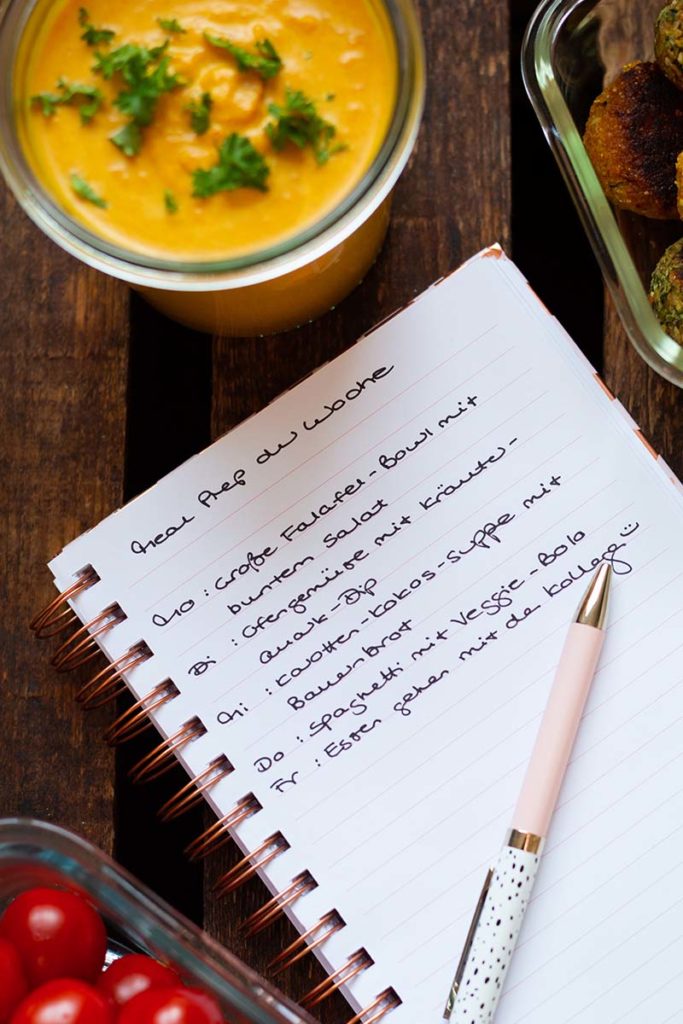 Meal Prep der Woche
Mo: Große Falafel-Bowl mit
buntem Salat
Di: Ofengemüse mit Kräuter-
quark-Dip
Mi: Karotten-Kokos-Suppe mit
Bauernbrot
Do: Spaghetti mit Veggie-Bolo
Fr: Essen gehen mit de